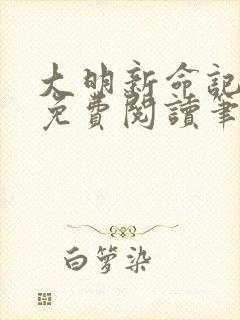 大明新命記
免費閱讀筆
白箩染